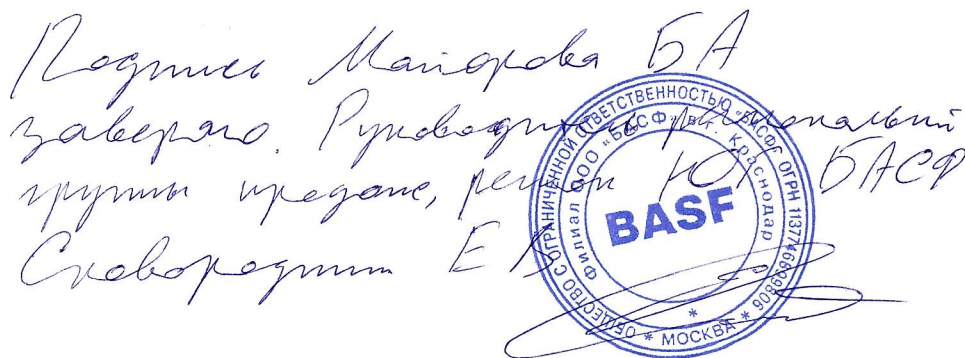 Подпись Майорова БА
заверяю. Руководитель региональной
группы продаж, регион ЮГ БАСФ
Сковородкин Е В
ОБЩЕСТВО С ОГРАНИЧЕННОЙ ОТВЕТСТВЕННОСТЬЮ «БАСФ» ОГРН 1137746699806
* МОСКВА *
Филиал ООО «БАСФ» в г. Краснодар
BASF